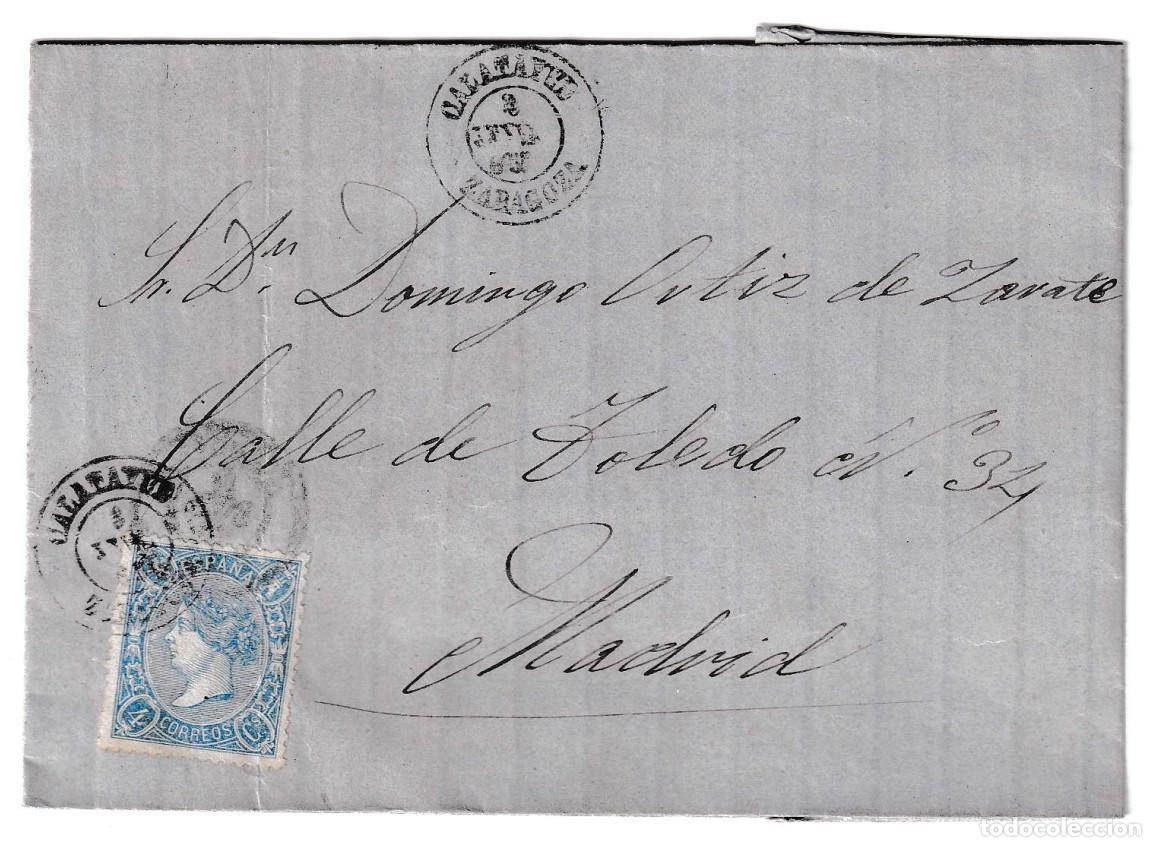 CALATAYUD
ZARAGOZA
Sr. Dn. Domingo Ortiz de Zarate
Calle de Toledo Nº. 34
Madrid
CALATAYUD
ESPAÑA 4
4 CORREOS Cs
todocoleccion